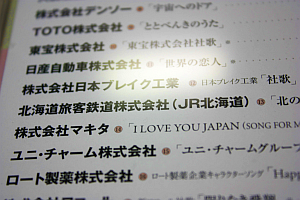 株式会社デンソー ●「宇宙へのドア」
TOTO株式会社 ●「ととべんきのうた」
東宝株式会社 ●「東宝株式会社社歌」
日産自動車株式会社 ●「世界の恋人」
株式会社日本ブレイク工業 ● 日本ブレイク工業「社歌」
北海道旅客鉄道株式会社（JR北海道） ⑬「北の
株式会社マキタ ⑭「I LOVE YOU JAPAN (SONG FOR M
ユニ・チャーム株式会社 ⑮「ユニ・チャームグルー
ロート製薬株式会社 ⑯ ロート製薬企業キャラクターソング「Happ